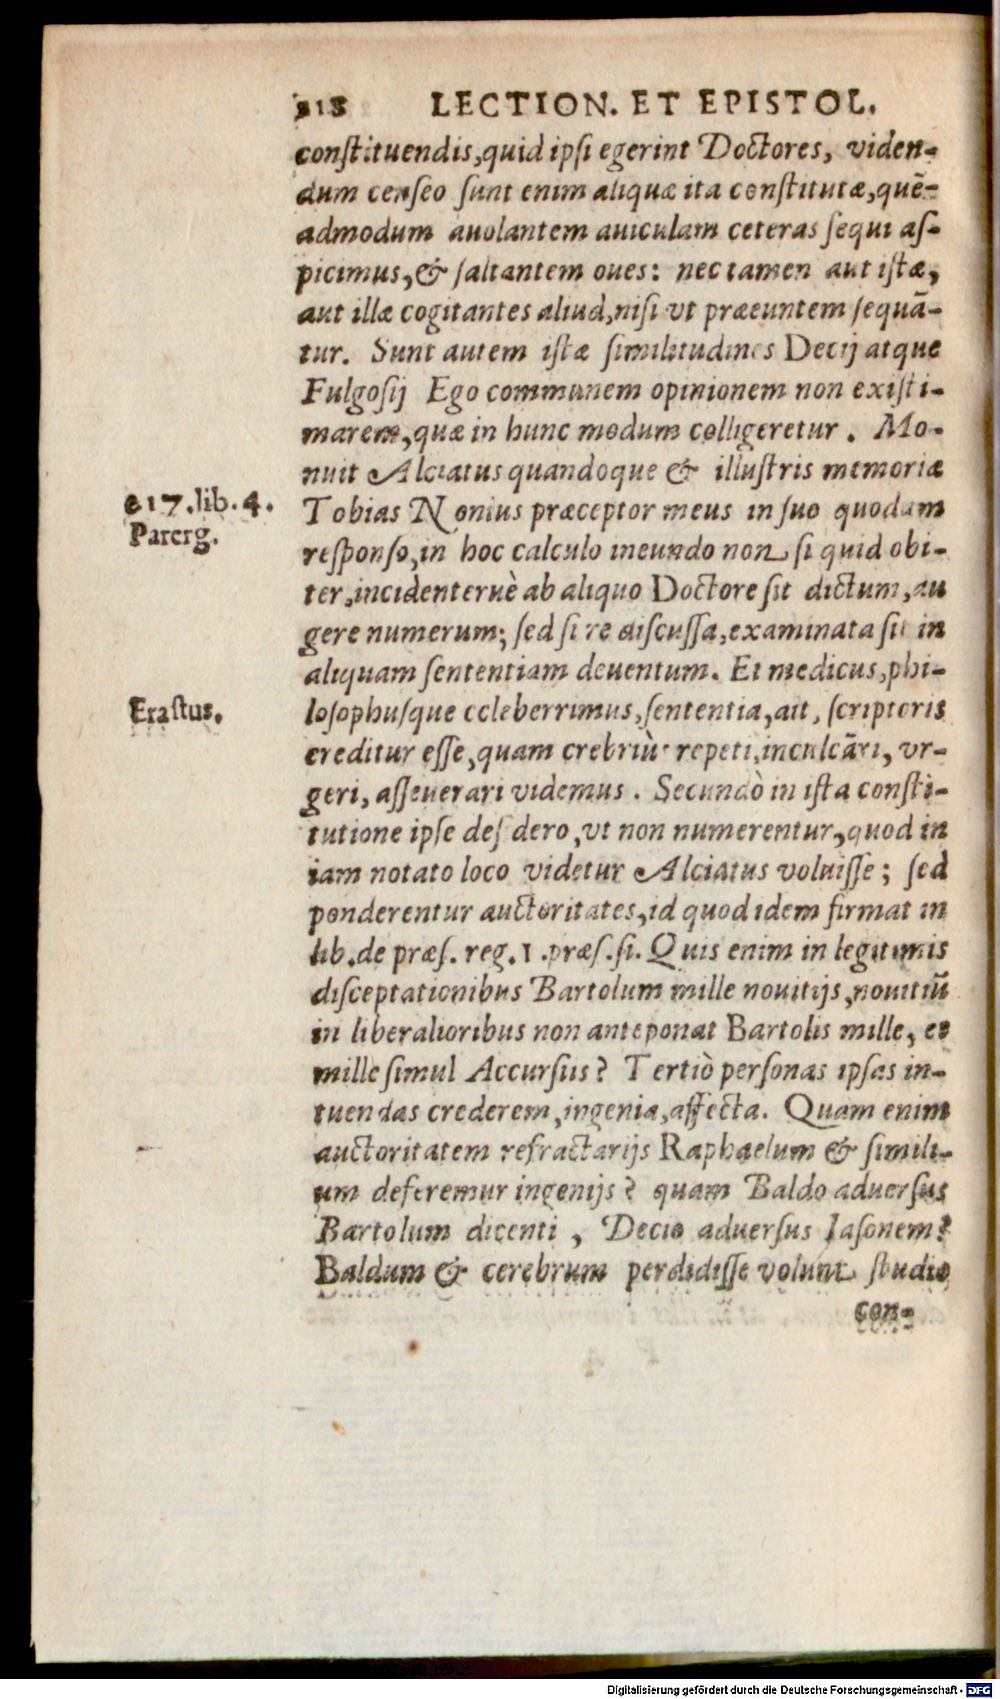 218 LECTION. ET EPISTOL.
constituendis, quid ipsi egerint Doctores, viden-
dum censeo sunt enim aliquæ ita constitutæ, quẽ-
admodum auolantem auiculam ceteras sequi as-
picimus, & saltantem oues: nec tamen aut istæ,
aut illæ cogitantes aliud, nisi vt præeuntem sequã-
tur. Sunt autem istæ similitudines Decij atque
Fulgosij Ego communem opinionem non existi-
marem, quæ in hunc modum colligeretur. Mo-
nuit Alciatus quandoque & illustris memoriæ
c 17. lib. 4.
Parerg.
Tobias Nonius præceptor meus in suo quodam
responso, in hoc calculo ineundo non si quid obi-
ter, incidenteruè ab aliquo Doctore sit dictum, au
gere numerum; sed si re discussa, examinata sit in
aliquam sententiam deuentum. Et medicus, phi-
Erastus.
losophusque celeberrimus, sententia, ait, scriptoris
creditur esse, quam crebriùs repeti, inculcãri, vr-
geri, asseuerari videmus. Secundò in ista consti-
tutione ipse desidero, vt non numerentur, quod in
iam notato loco videtur Alciatus voluisse; sed
ponderentur auctoritates, id quod idem firmat in
lib. de præs. reg. 1. præs. si. Quis enim in legitimis
disceptationibus Bartolum mille nouitijs, nouitiũ
in liberalioribus non anteponat Bartolis mille, et
mille simul Accursiis? Tertiò personas ipsas in-
tuendas crederem, ingenia, affecta. Quam enim
auctoritatem refractarijs Raphaelum & simili-
um deferemur ingenijs? quam Baldo aduersus
Bartolum dicenti, Decio aduersus Iasonem?
Baldum & cerebrum perdidisse volunt studio
con-
Digitalisierung gefördert durch die Deutsche Forschungsgemeinschaft - DFG